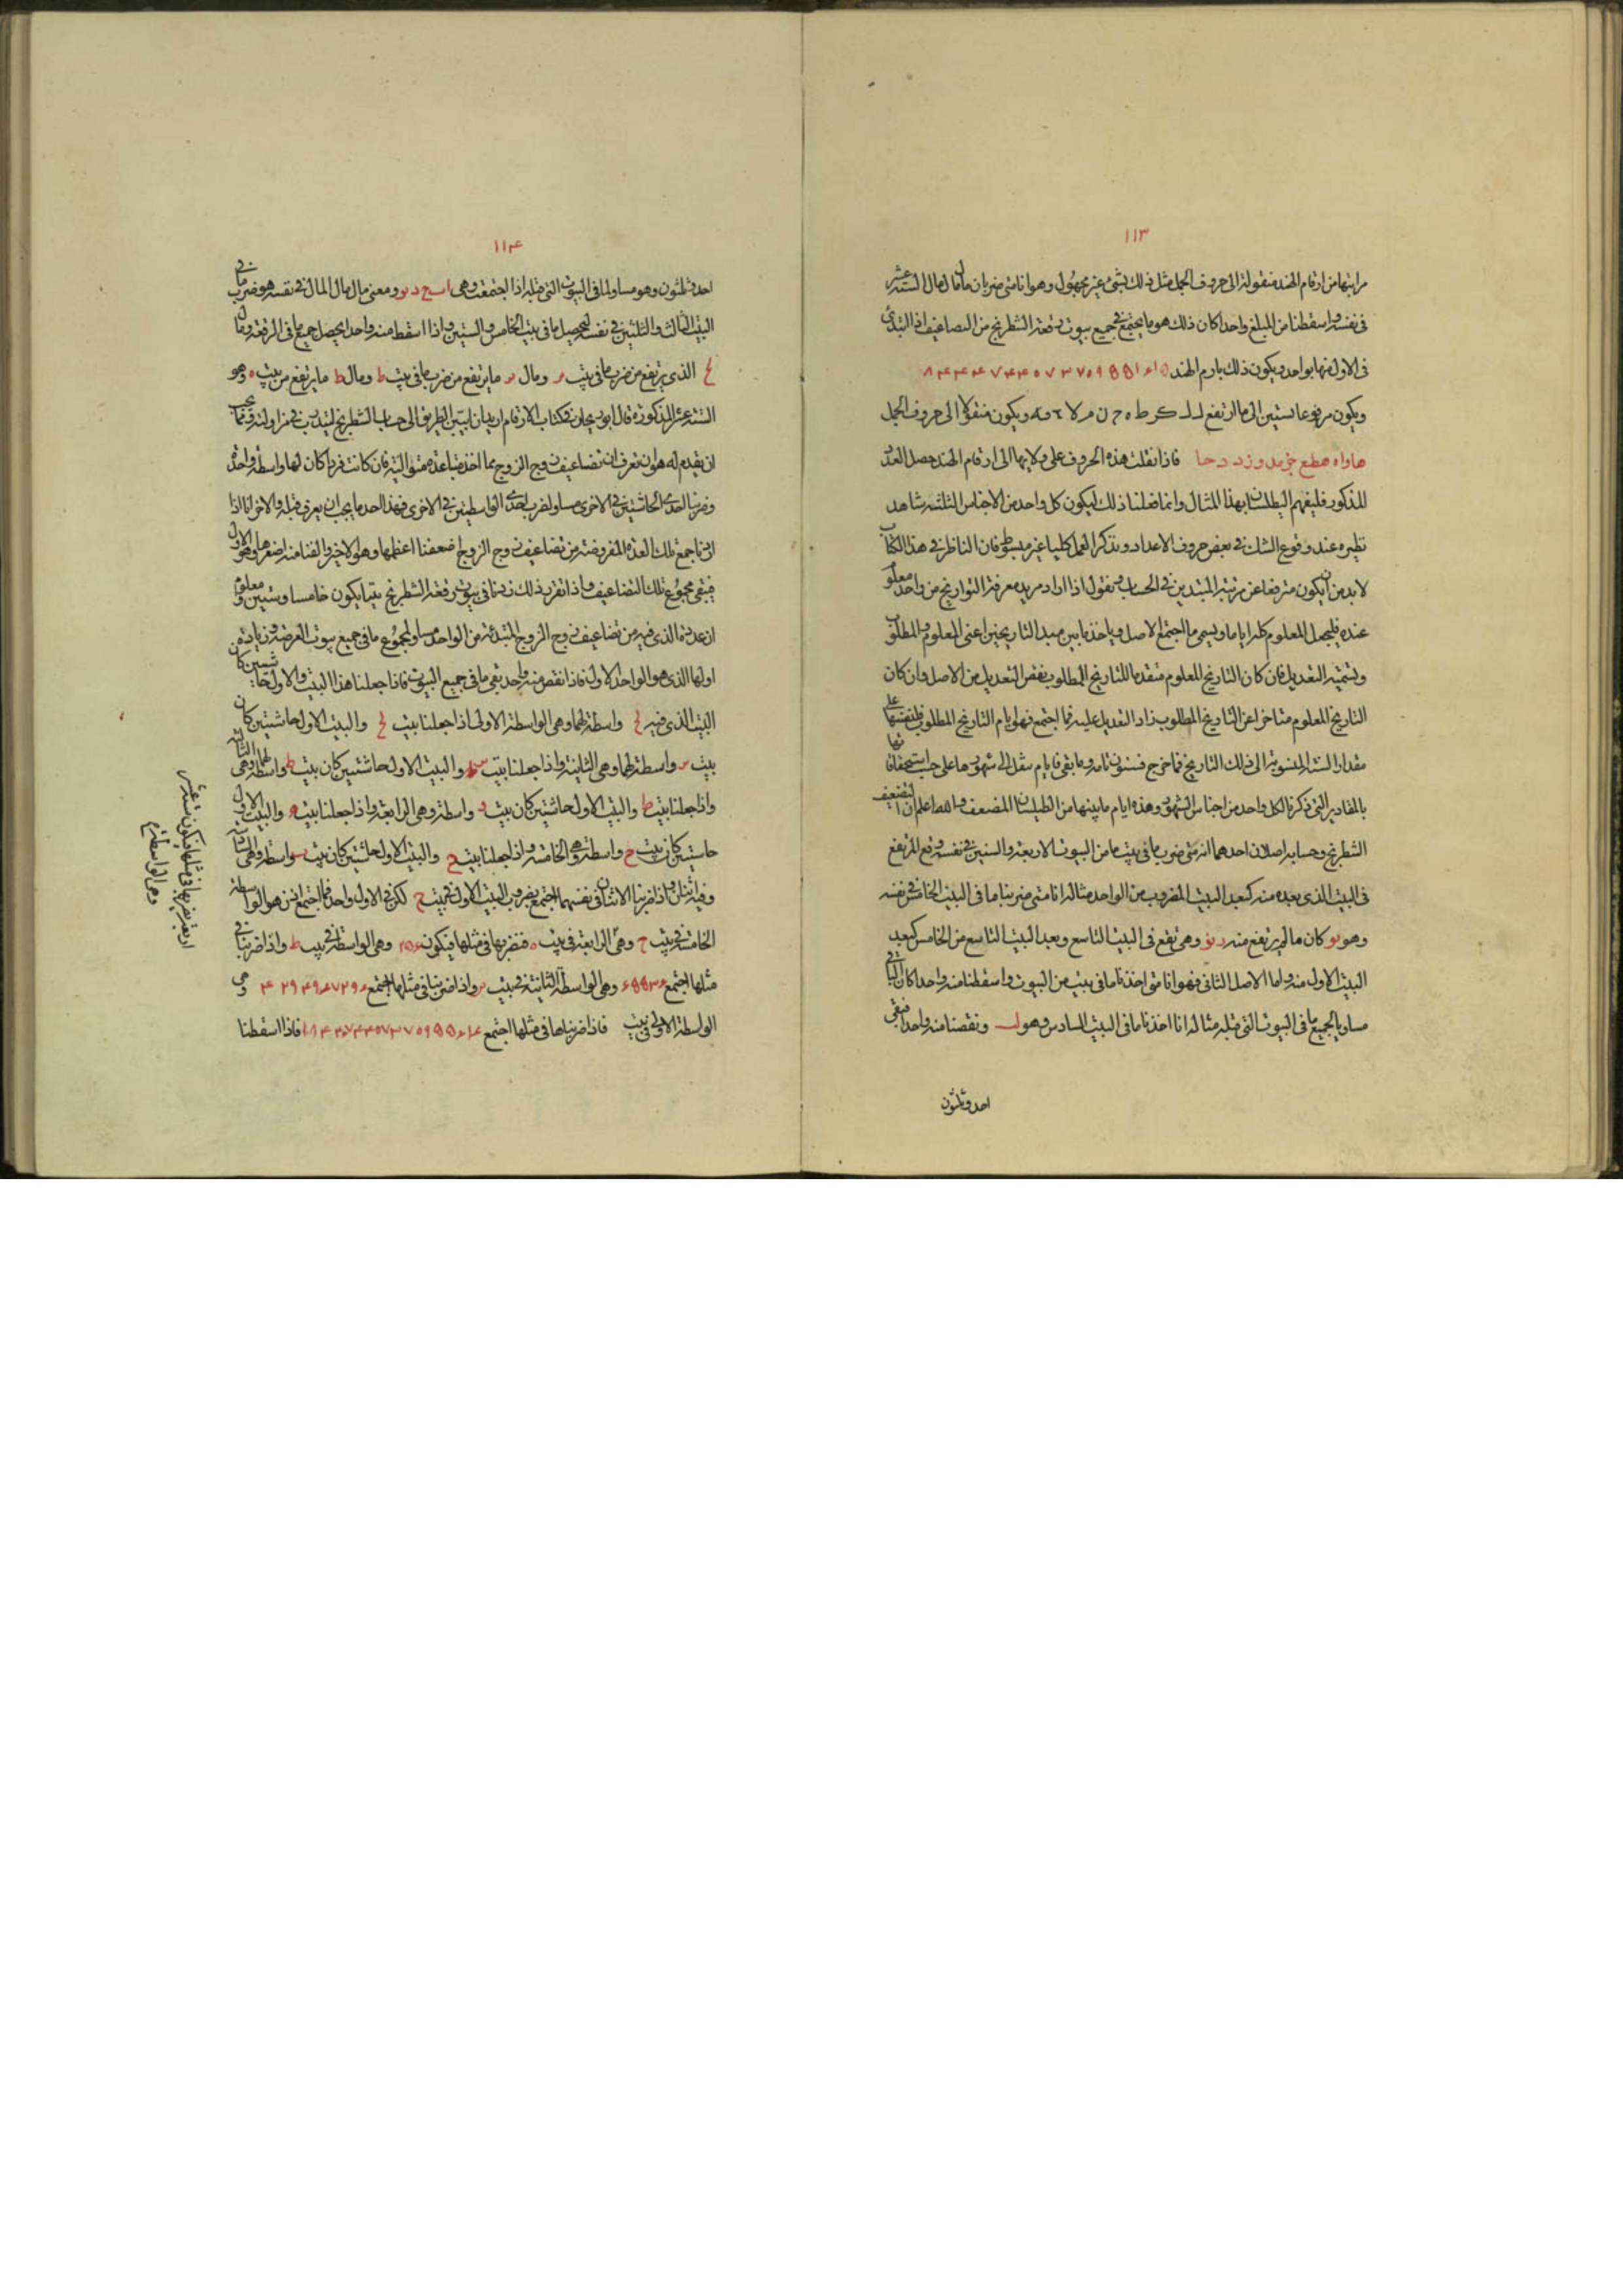 ١١٣
مراتبها من ارقام الهند منقولة الى حروف الجمل مثل ذلك بشئ غير مجهول وهو انا متى ضربنا مال مال مال الستة عشر
فى نفسه واسقطنا من المبلغ واحدا كان ذلك هو ما يجتمع فى جميع بيوت رقعة الشطرنج من التضاعيف اذا ابتدئ
فى الاول منها بواحد ويكون ذلك بارقم الهند ١٨٤٤٦٧٤٤٠٧٣٧٠٩٥٥١٦١٥
ويكون مرفوعا بستين الى ما ارتفع ويكون منقولا الى حروف الجمل
فاذا نقلت هذه الحروف على ولائها الى ارقام الهند حصل العدد
المذكور فليفهم الطيلسان بهذا المثال وانما فعلنا ذلك ليكون كل واحد من الاجناس الثلثة شاهد
نظيره عند وقوع الشك فى بعض حروف الاعداد ونذكر العمل كليا غير مبسوط فان الناظر فى هذا الكتاب
لا بد من ان يكون مترفعا عن مرتبة المبتدين فى الحساب فنقول اذا اراد مريد معرفة التواريخ من واحد معلوم
عنده فليجعل المعلوم كله اياما ويسمى ما اجتمع الاصل وياخذ ما بين مبدا التاريخين اعنى المعلوم والمطلوب
ويسميه التعديل فان كان التاريخ المعلوم متقدما للتاريخ المطلوب نقص التعديل من الاصل وان كان
التاريخ المعلوم متاخرا عن التاريخ المطلوب زاد التعديل عليه فما اجتمع فهو ايام التاريخ المطلوب فلنقسمها على
مقدار السنة المنسوبة الى ذلك التاريخ فما خرج فسنون تامة وما بقى فايام ينقل الى شهورها على حسب استحقاقها
بالمقادير التى ذكرنا لكل واحد من اجناس الشهور وهذه ايام ما بينها من الطيلسان المضعف والله اعلم ان لتضعيف
الشطرنج وحسابه اصلان احدهما انه متى ضرب ما فى بيت ما من البيوت الاربعة والستين فى نفسه وقع المرتفع
فى البيت الذى بعده منه كبعد البيت المضروب من الواحد مثاله انا متى ضربنا ما فى البيت الخامس فى نفسه
وهو يو كان ما يرتفع منه رنو وهى تقع فى البيت التاسع وبعد البيت التاسع من الخامس كبعد
البيت الاول منه واما الاصل الثانى فهو انا متى اخذنا ما فى بيت من البيوت واسقطنا منه واحدا كان الباقى
مساويا لجميع ما فى البيوت التى قبله مثاله انا اخذنا ما فى البيت السادس وهو لب ونقصنا منه واحدا فبقى
احد وثلثون
١١٤
احد وثلثون وهو مساو لما فى البيوت التى قبله اذا اجتمعت وهى ا ب د ح يو ومعنى مال مال المال فى نفسه هو ضرب ما فى
البيت الثالث والثلثين فى نفسه ليحصل ما فى بيت الخامس والستين واذا اسقط منه واحد ليحصل جميع ما فى الرقعة ومال
الذى يرتفع من ضرب ما فى بيت ومال ما يرتفع من ضرب ما فى بيت ط ومال ط ما يرتفع من بيت ه وهو
الستة عشر المذكورة قال ابو ريحان فى كتاب الارقام اريد ان ابين الطريق الى حساب الشطرنج ليتدرب فى مزاولته وقبل ما يجب
ان يقدم له هو ان نعرف ان تضاعيف زوج الزوج مما اخذ منها عدة متوالية فان كانت فردا كان لها واسطة واحدة
وضرب احدى الحاشيتين فى الاخرى مساو لضرب احدى الواسطتين فى الاخرى فهذا احد ما يجب ان يعرف قبله والاخر انا اذا
اردنا جمع تلك العدة المفروضة من تضاعيف زوج الزوج اضعفنا اعظمها وهو الاخير والقينا منه اصغرها وهو الاول
فيبقى مجموع تلك التضاعيف واذا تقرر ذلك زدنا فى بيوت رقعة الشطرنج بيتا يكون خامسا وستين ومعلوم
ان عدة الذى فيه من تضاعيف زوج الزوج المبتدئة من الواحد مساو لمجموع ما فى جميع بيوت الرقعة وزيادة
اولها الذى هو الواحد الاول فاذا نقص منه واحد بقى ما فى جميع البيوت فاذا جعلنا هذا البيت والاول حاشيتين كان
البيت الذى فيه واسطة لهما وهى الواسطة الاولى اذا جعلنا بيت والبيت الاول حاشيتين كان
بيت واسطة لهما وهى الثانية واذا جعلنا بيت والبيت الاول حاشيتين كان بيت ط واسطة لهما وهى الثالثة
واذا جعلنا بيت ط والبيت الاول حاشيتين كان بيت ه واسطة وهى الرابعة واذا جعلنا بيت ه والبيت الاول
حاشيتين كان بيت ج واسطة وهى الخامسة واذا جعلنا بيت ج والبيت الاول حاشيتين كان بيت ب واسطة وهى السادسة
وفيه اثنان فاذا ضربنا الاثنان فى نفسهما اجتمع ضروب البيت الاول فى بيت ج لكن فى الاول واحد فما اجتمع اذن هو الواسطة
الخامسة فى بيت ج وهى الرابعة فى بيت ه فنضربها فى مثلها فيكون ٢٥٦ وهى الواسطة فى بيت ط واذا ضربنا فى
مثلها اجتمع ٦٥٥٣٦ وهى الواسطة الثانية فى بيت واذا ضربنا فى مثلها اجتمع ٤٢٩٤٩٦٧٢٩٦ وهى
الواسطة الاولى فى بيت فاذا ضربناها فى مثلها اجتمع ١٨٤٤٦٧٤٤٠٧٣٧٠٩٥٥١٦١٦ فاذا اسقطنا
اربعة نضربها فى مثلها فيكون ستة عشر
وهى الواسطة